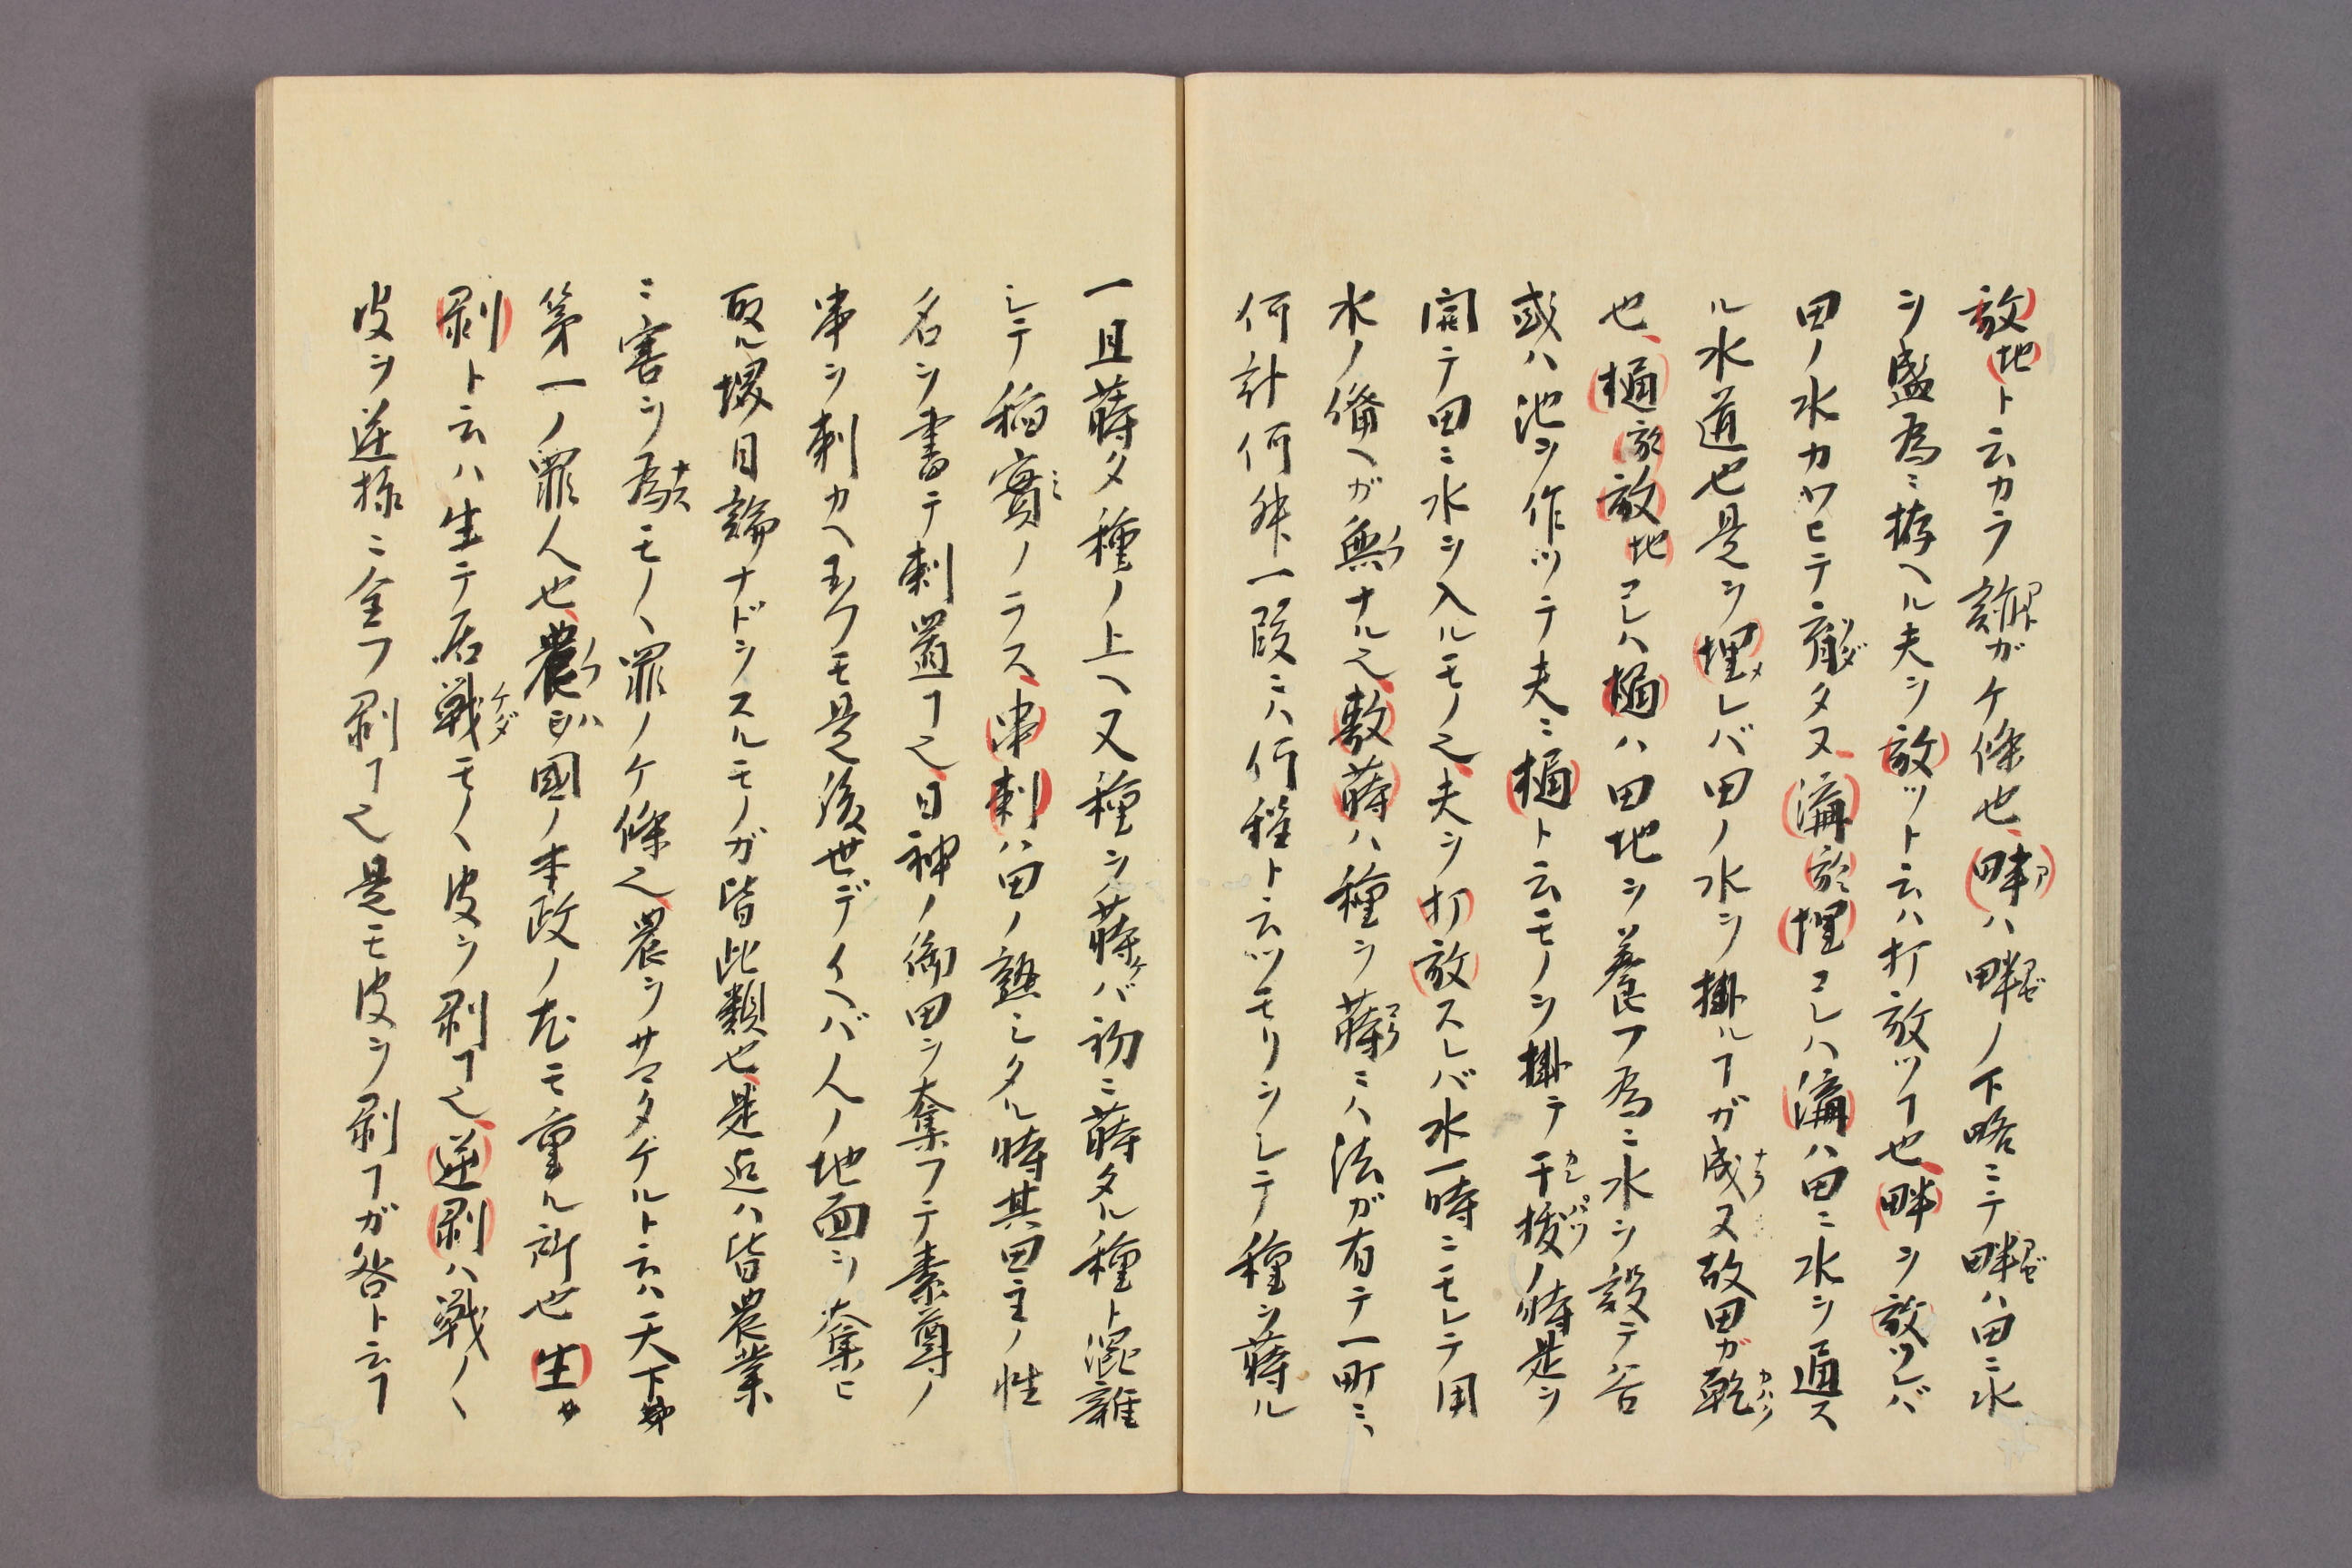 放地ト云カラ訴ガケ條也、畔ハ畔ノ下略ニテ畔ハ田ニ水
ヲ盛為ニ拵ヘル夫ヲ放ツト云ハ打放ツヿ也、畔ヲ放ツレバ
田ノ水カワヒテ育タヌ、溝於埋コレハ溝ハ田ニ水ヲ通ス
ル水道也是ヲ埋レバ田ノ水ヲ掛ルヿガ成ヌ故田ガ乾
也、樋於放地コレハ樋ハ田地ヲ養フ為ニ水ヲ設テ谷
或ハ池ヲ作ツテ夫ニ樋ト云モノヲ掛テ干抜ノ時是ヲ
開テ田ニ水ヲ入ルモノ也、夫ヲ打放スレバ水一時ニモレテ用
水ノ備ヘガ無ナル也、敷蒔ハ種ヲ蒔ニハ法ガ有テ一町ニハ
何計何舛一段ニハ何程ト云ツモリヲシテ種ヲ蒔ル
一旦蒔タ種ノ上ヘ又種ヲ蒔バ初ニ蒔タル種ト混雜
シテ稲實ノラス、串刺ハ田ノ熟シタル時其田主ノ性
名ヲ書テ刺置ヿ也、日神ノ御田ヲ奪フテ素尊ノ
串ヲ刺カヘ玉フモ是後世デイヘバ人ノ地面ヲ奪ヒ
取ル堺目論ナドヲスルモノガ皆此類也、是迠ハ皆農業
ニ害ヲ為モノヽ罪ノケ條也、農ヲサマタゲルト云ハ天下
第一ノ罪人也、農ハ國ノ本政ノ尤モ重ル所也 生
剥ト云ハ生テ居戰モノヽ皮ヲ剥ヿ也、逆剥ハ戰ノヽ
皮ヲ逆様ニ全フ剥ヿ也是モ皮ヲ剥ヿガ咎ト云ヿ